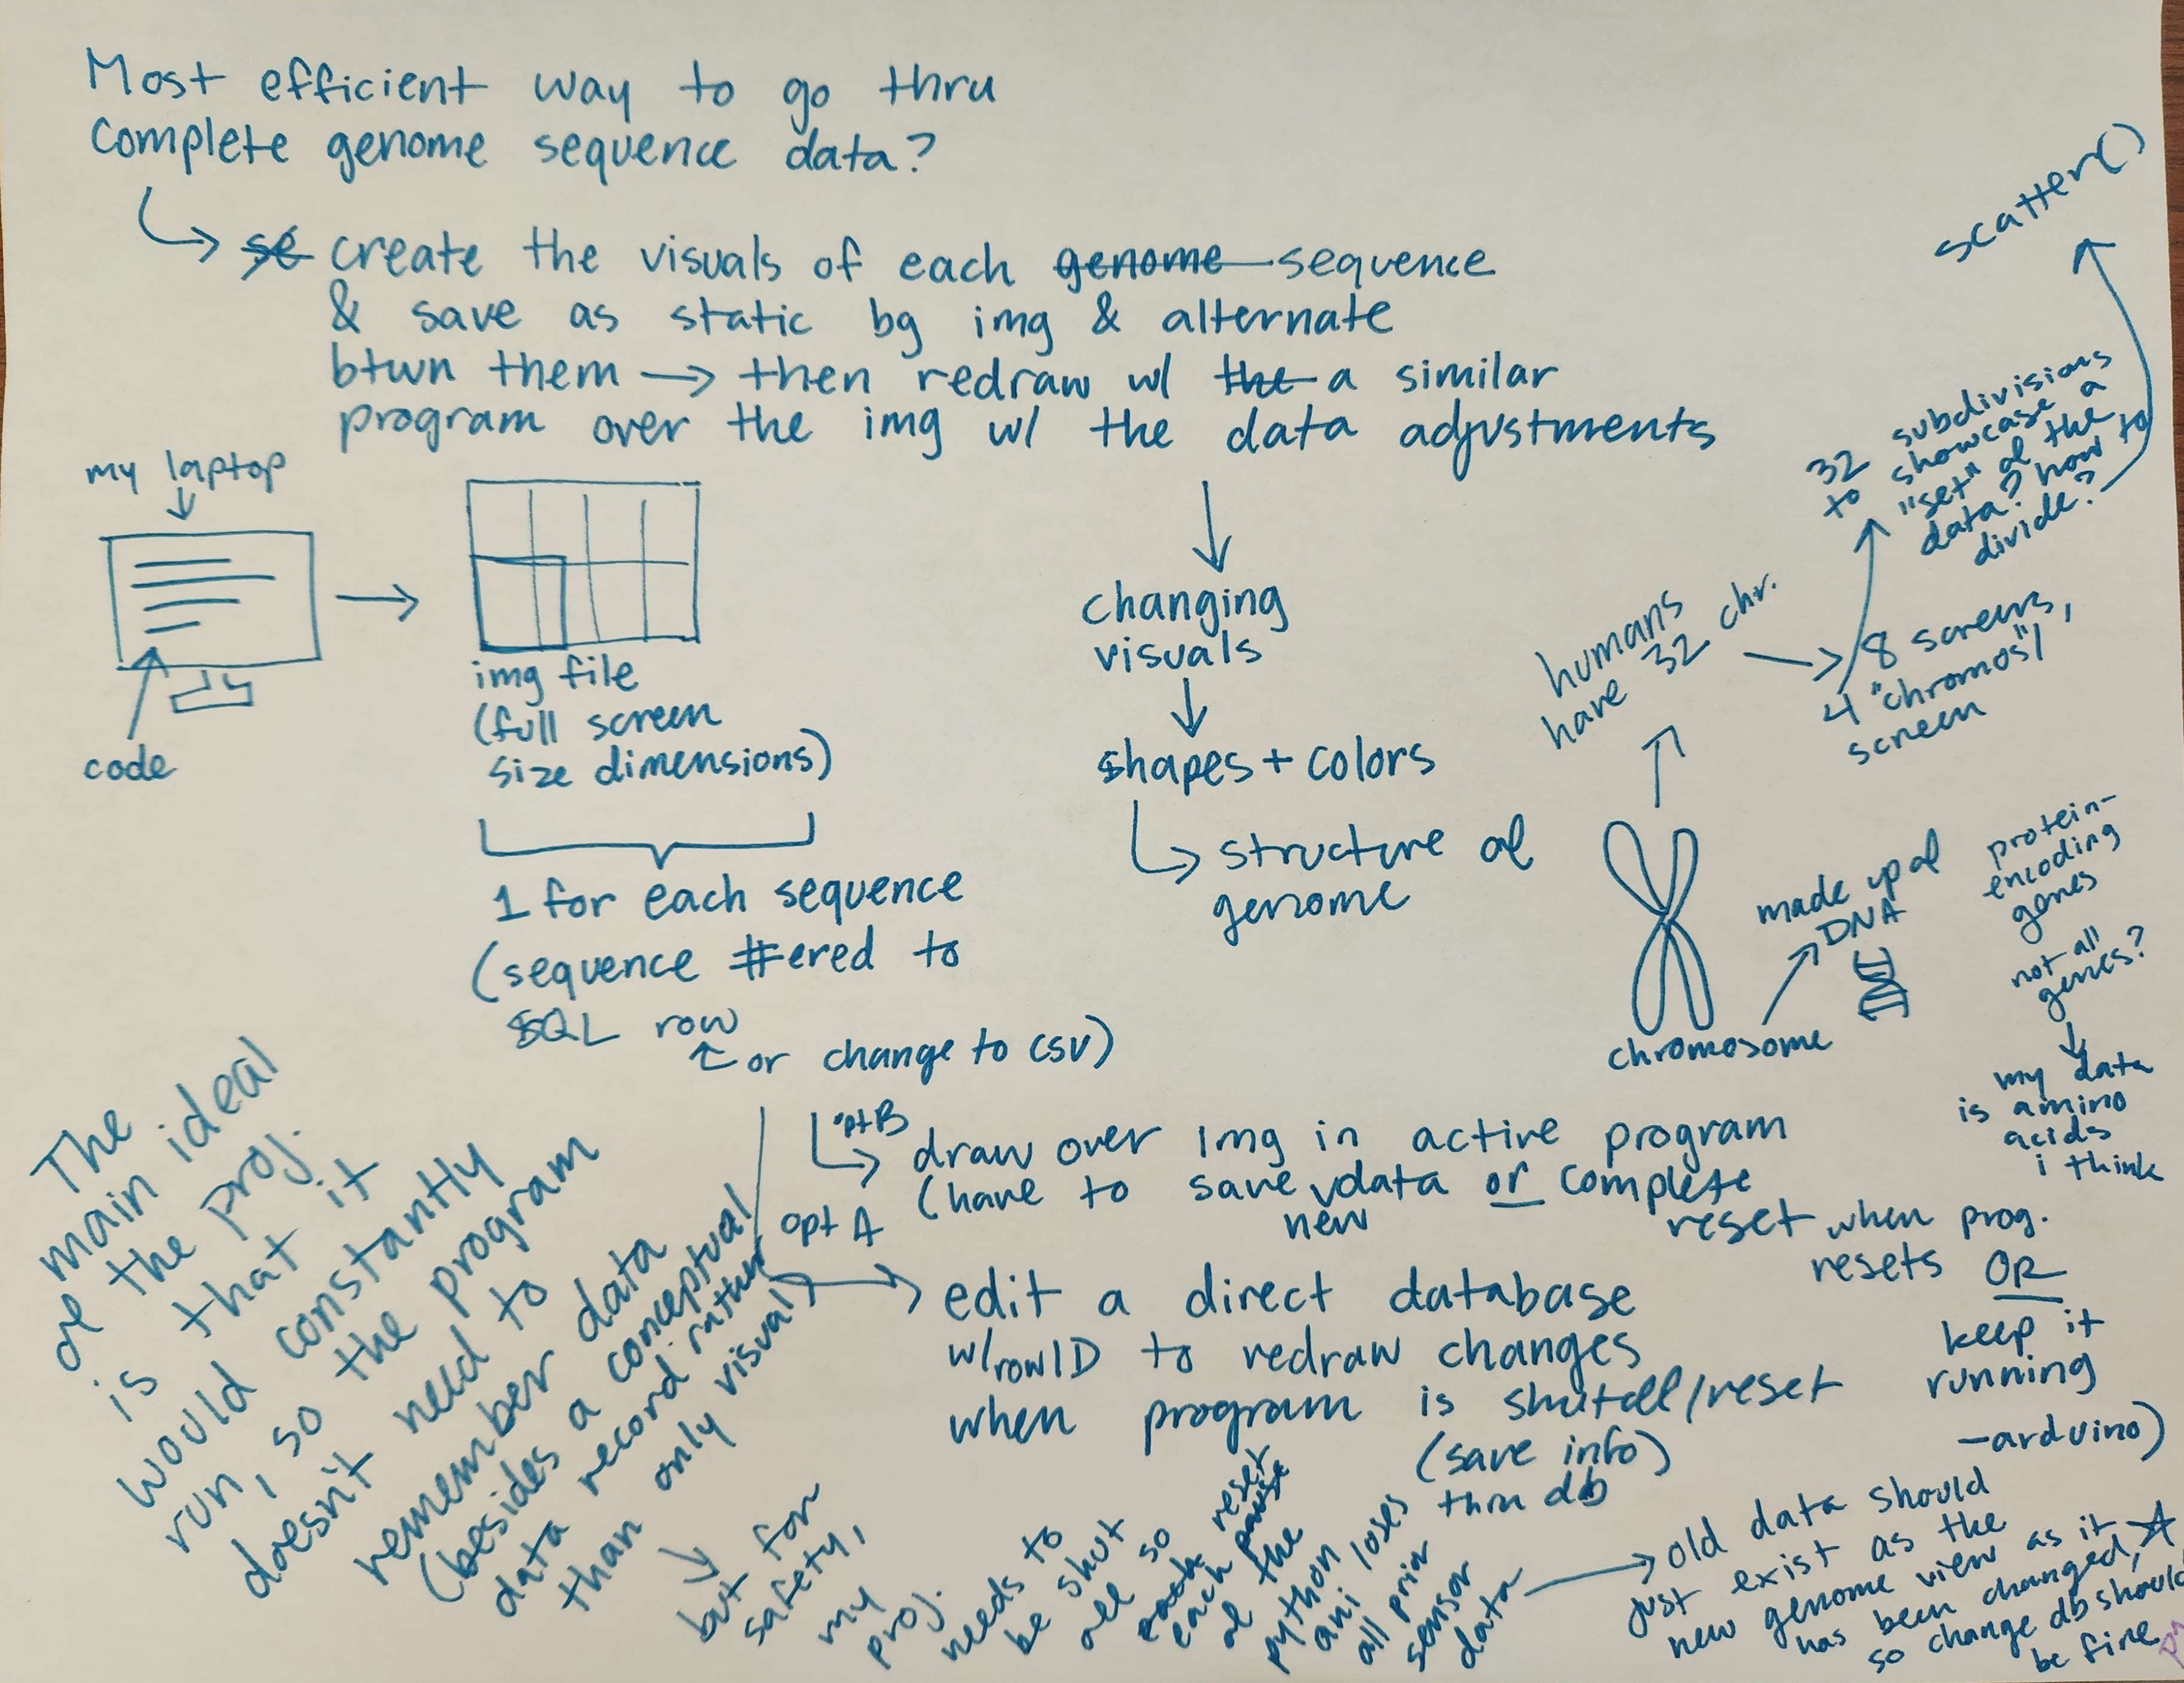 Most efficient way to go thru
complete genome sequence data?
se create the visuals of each genome sequence
& save as static bg img & alternate
btwn them → then redraw w/ the a similar
program over the img w/ the data adjustments
my laptop
code
img file
(full screen
size dimensions)
1 for each sequence
(sequence #ered to
SQL row
or change to csv)
changing
visuals
shapes + colors
structure of
genome
chromosome
made up of
DNA
protein-
encoding
genes
not all
genes?
my data
is amino
acids
i think
humans
have 32 chr.
8 screens,
4 "chromos"/
screen
32 subdivisions
to showcase a
"set" of the
data? how to
divide?
scatter()
opt B
draw over img in active program
(have to save new data or complete
reset when prog.
resets OR
keep it
running
-arduino)
opt A
edit a direct database
w/rowID to redraw changes
when program is shutoff/reset
(save info)
thru db
The
main ideal
of the proj.
is that it
would constantly
run, so the program
doesn't need to
remember data
(besides a conceptual
data record rather
than only visual)
but for
safety,
my
proj.
needs to
be shut
off so
each reset
of the
python
ani loses
all prior
sensor
data
old data should
just exist as the
new genome view as it
has been changed,
so change db should
be fine